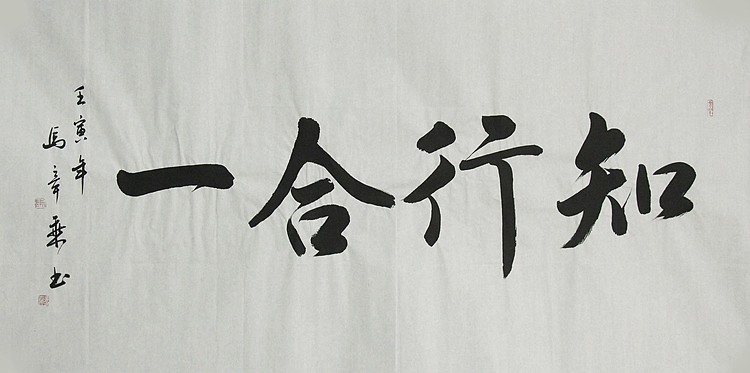 知行合一
壬寅年
馬章乘书